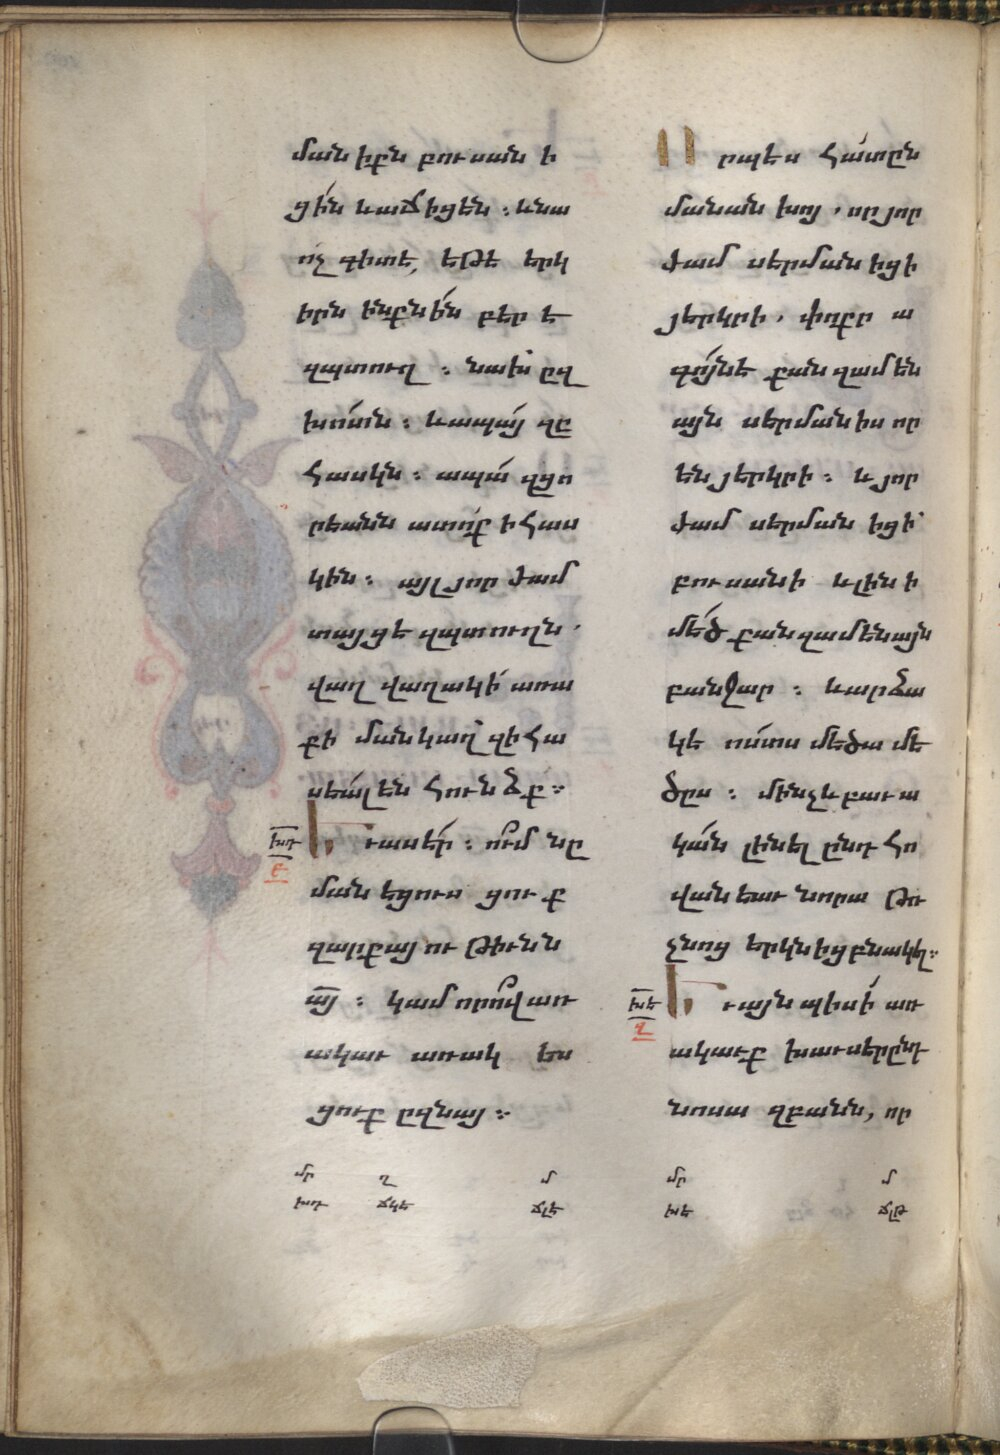 մանիքն բուսանի
ցին ևաճիցեն ։ ևնա
ոչ գիտէ, եթէ երկ
իրն ինքնին բերէ
զպտուղ ։ նախ ըզ
խոտն ։ ևապայ զը
հասկն ։ ապա զցո
րեանն ատոք ի հաս
կին ։ այլ յորժամ
տայցէ զպտուղն ·
վաղ վաղակի առա
քի մանկաղ զի հա
սեալ են հունձք ։
խդ
Եւասէր ։ ում նը
մանեցուս ցուք
զարքայութիւնն
այ ։ կամ որով առ
ակաւ առակ ես
ցուք ըզնայ ։
Որպէս հատըն
մանանխոյ · որ յոր
ժամ սերմանիցի
յերկրի · փոքր ա
գոյնէ քան զամեն
այն սերմանիս որ
են յերկրի ։ և յոր
ժամ սերմանիցի
բուսանի ևլինի
մեծ քան զամենայն
բանջար ։ ևարձա
կէ ոստս մեծամե
ծըս ։ մինչև բաւա
կան լինել ընդ հո
վանեաւ նորա թռ
չնոց երկնից բնակել ։
խե
զ
Եւայնպիսի առ
ակաւք խաւսէր ընդ
նոսա զբանն, որ
մր ղ մ
խդ ճկե ճլե
մր մ
խե ճլթ